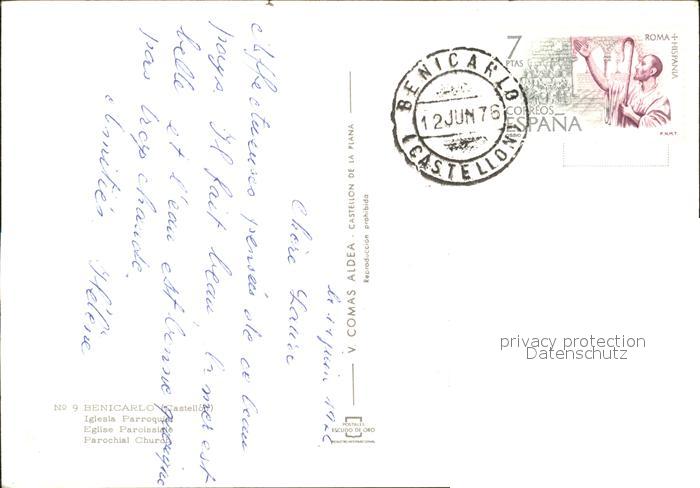 le 11 juin 1976
Chère Laure
affectueuses pensées de ce beau
pays. Il fait beau, la mer est
belle et l'eau est bonne quoique
pas trop chaude.
Amitiés
Hélène
Nº 9 BENICARLO (Castellón)
Iglesia Parroquial
Eglise Paroissiale
Parochial Church
V. COMAS ALDEA - CASTELLON DE LA PLANA
Reproduccion prohibida
POSTALES
ESCUDO DE ORO
BENICARLO
12 JUN 76
(CASTELLON)
7
PTAS
ROMA + HISPANIA
CORREOS
ESPAÑA
F.N.M.T.
privacy protection
Datenschutz